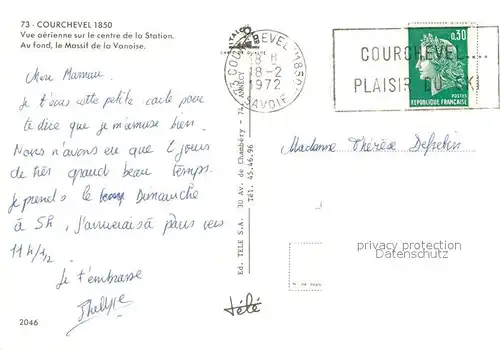 73 - COURCHEVEL 1850
Vue aérienne sur le centre de la Station.
Au fond, le Massif de la Vanoise.
Chère Maman
Je t'écris cette petite carte pour
te dire que je m'amuse bien.
Nous n'avons eu que 2 jours
de très grand beau temps.
Je prends le Dimanche
à 5h, j'arriverais à Paris vers
11 h 1/2
Je t'embrasse
Philippe
2046
Ed. TELE S.A. 30 Av. de Chambéry - 74, ANNECY
Tél. 45.46.96
télé
73 COURCHEVEL (1850)
18 H
18-2
1972
SAVOIE
COURCHEVEL....
PLAISIR DU SKI
0,30
POSTES
REPUBLIQUE FRANÇAISE
Madame Thérèse
privacy protection
Datenschutz